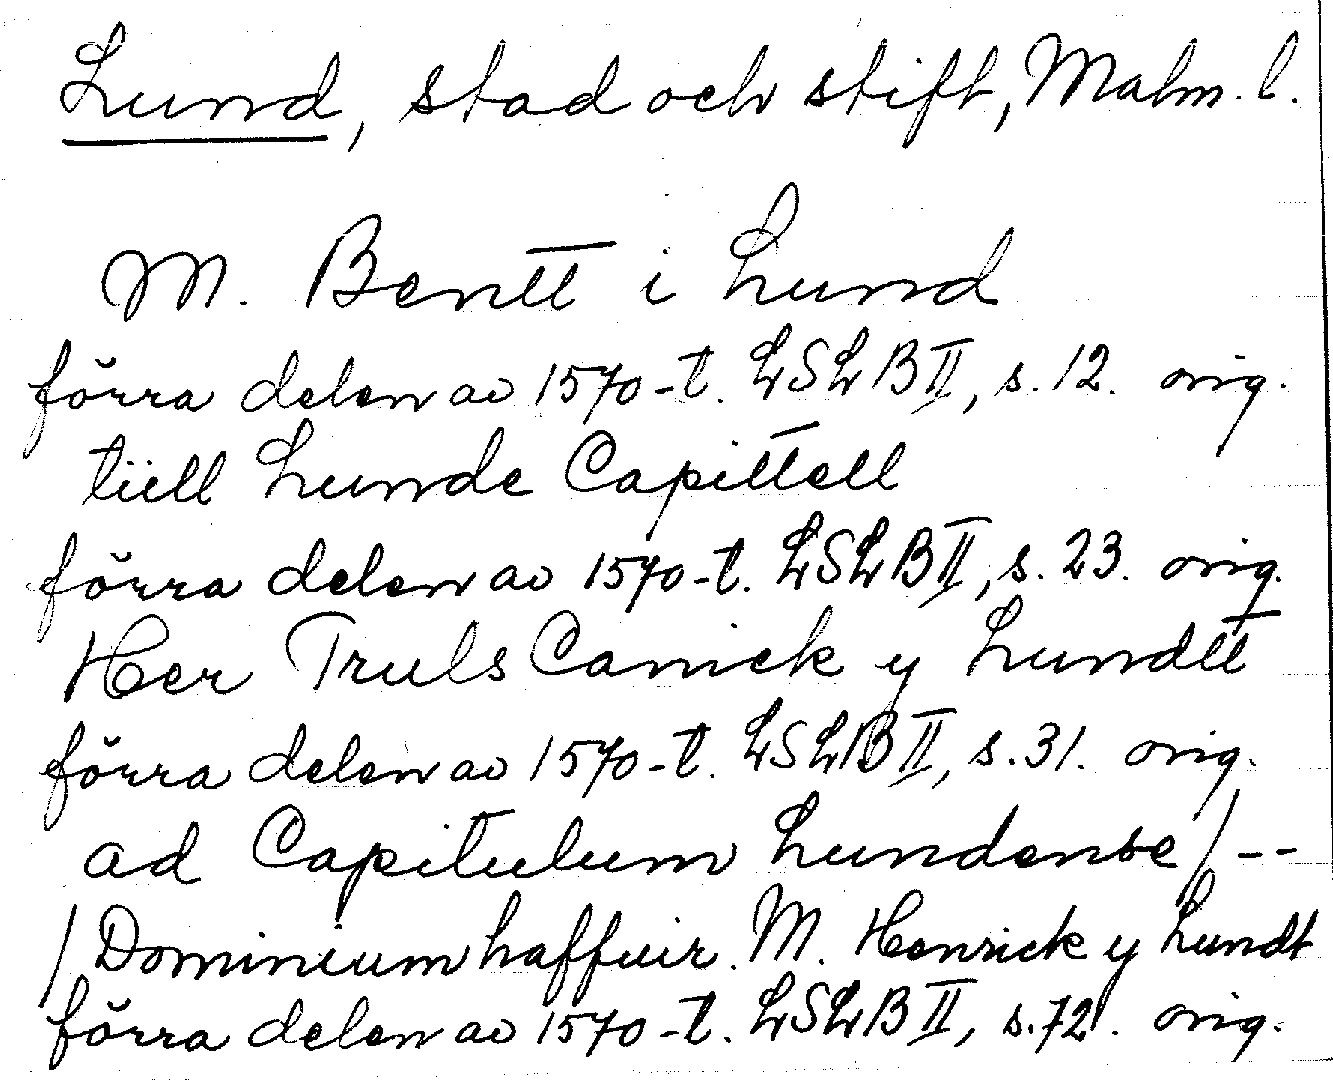 Lund, stad och stift, Malm. l.
M. Bentt i Lund
förra delen av 1570-t. LSLB II, s. 12. orig.
tiill Lunde Capittell
förra delen av 1570-t. LSLB II, s. 23. orig.
Her Truls Canick y Lundtt
förra delen av 1570-t. LSLB II, s. 31. orig.
ad Capitulum Lundense / --
/ Dominium haffuir M. Henrick y Lundt
förra delen av 1570-t. LSLB II, s. 72. orig.